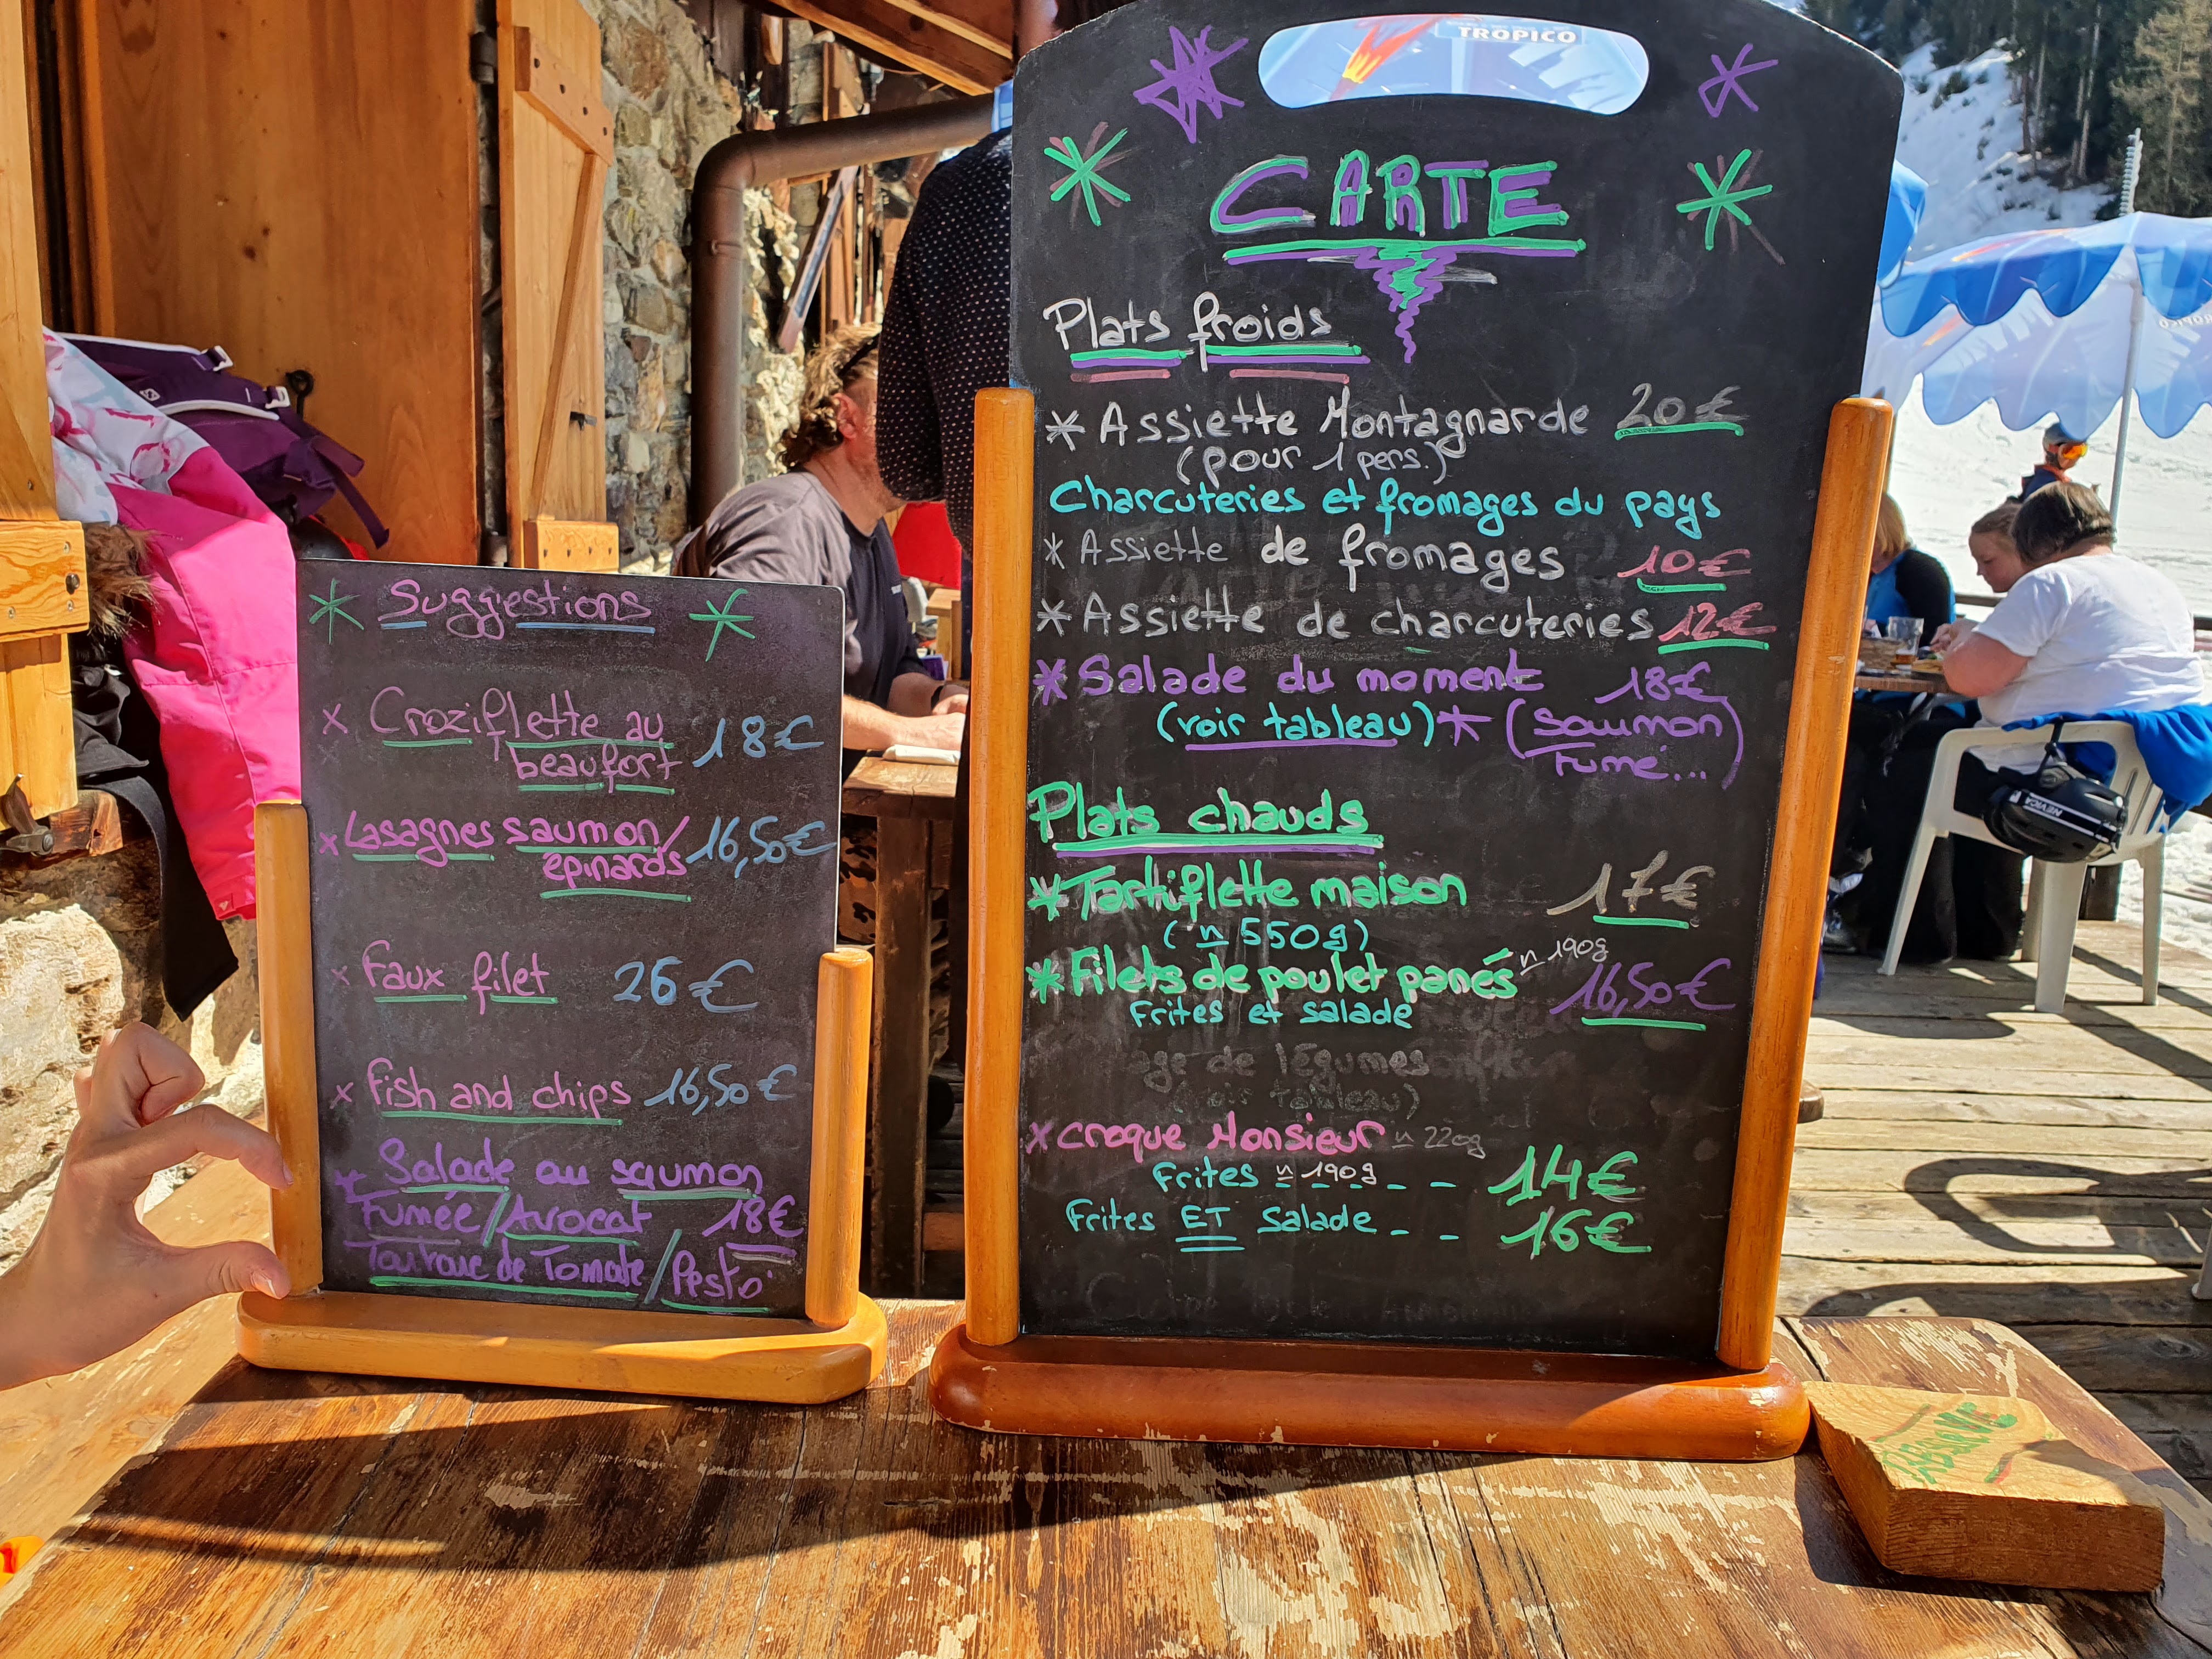 Suggestions
x Croziflette au 18€
beaufort
x Lasagnes saumon/ 16,50€
épinards
x Faux filet 26€
x Fish and chips 16,50€
* Salade au saumon
Fumée/Avocat 18€
de Tomate/Pesto
TROPICO
CARTE
Plats froids
* Assiette Montagnarde 20€
(pour 1 pers.)
Charcuteries et fromages du pays
* Assiette de fromages 10€
* Assiette de charcuteries 12€
* Salade du moment 18€
(voir tableau) * (saumon
Fumé...)
Plats chauds
* Tartiflette maison 17€
(≃ 550g)
* Filets de poulet panés ≃ 190g 16,50€
Frites et salade
de légumes
tableau)
x Croque Monsieur ≃ 220g
Frites ≃ 190g - - - - 14€
Frites ET Salade - - 16€
NEVICA